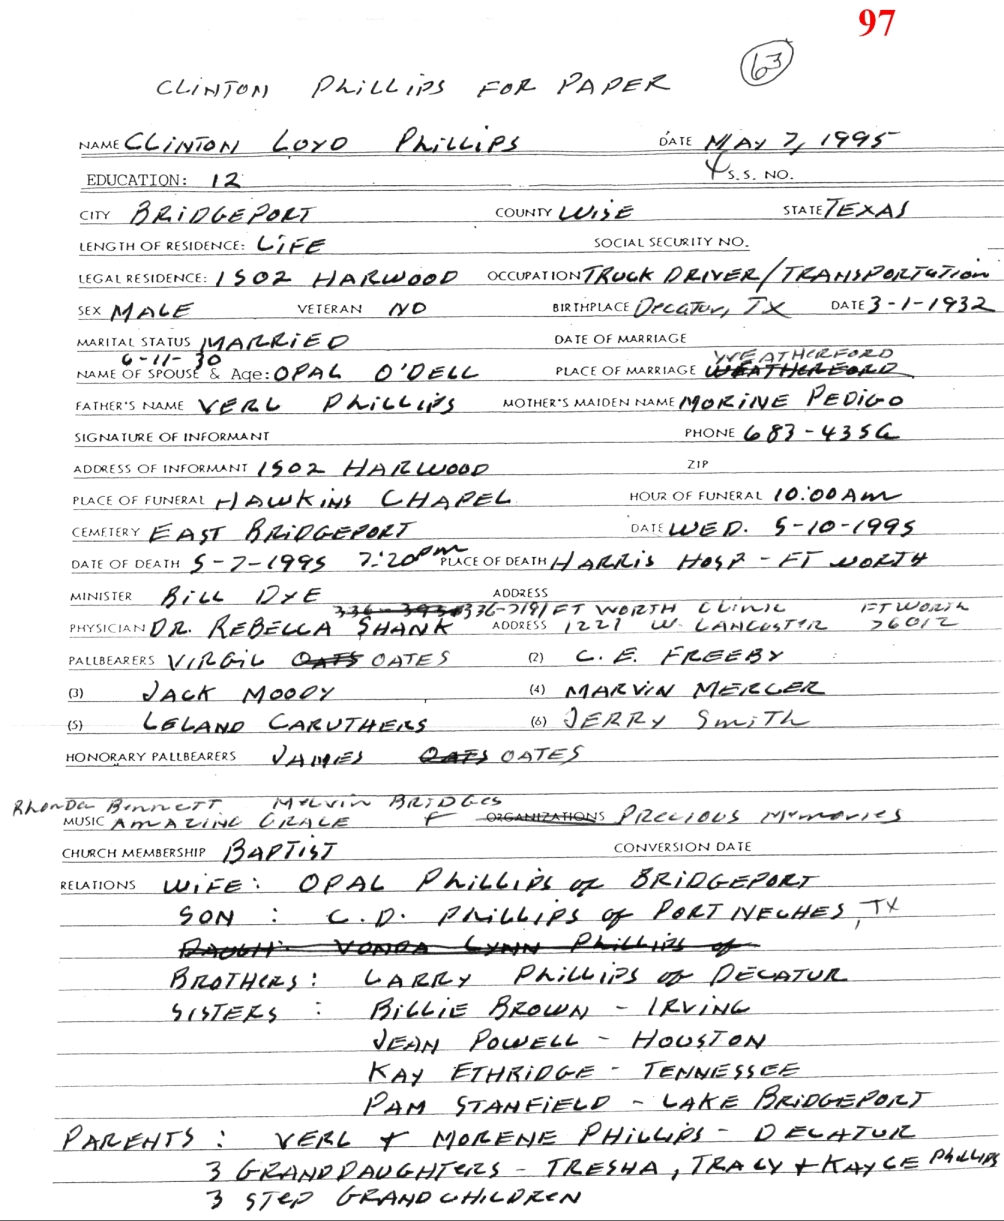 97
63
CLINTON PHILLIPS FOR PAPER
NAME CLINTON LOYD PHILLIPS DATE MAY 7, 1995
EDUCATION: 12 S.S. NO.
CITY BRIDGEPORT COUNTY WISE STATE TEXAS
LENGTH OF RESIDENCE: LIFE SOCIAL SECURITY NO.
LEGAL RESIDENCE: 1502 HARWOOD OCCUPATION TRUCK DRIVER/TRANSPORTATION
SEX MALE VETERAN NO BIRTHPLACE Decatur, TX DATE 3-1-1932
MARITAL STATUS MARRIED DATE OF MARRIAGE
6-11-30 WEATHERFORD
NAME OF SPOUSE & Age: OPAL O'DELL PLACE OF MARRIAGE WEATHERFORD
FATHER'S NAME VERL PHILLIPS MOTHER'S MAIDEN NAME MORINE PEDIGO
SIGNATURE OF INFORMANT PHONE 683-4356
ADDRESS OF INFORMANT 1502 HARWOOD ZIP
PLACE OF FUNERAL HAWKINS CHAPEL HOUR OF FUNERAL 10:00 AM
CEMETERY EAST BRIDGEPORT DATE WED. 5-10-1995
DATE OF DEATH 5-7-1995 7:20 PM PLACE OF DEATH HARRIS HOSP - FT WORTH
MINISTER BILL DYE ADDRESS
336-7191 FT WORTH CLINIC FT WORTH
PHYSICIAN DR. REBECCA SHANK ADDRESS 1221 W. LANCASTER 76012
PALLBEARERS VIRGIL OATS OATES (2) C. E. FREEBY
(3) JACK MOODY (4) MARVIN MERCER
(5) LELAND CARUTHERS (6) JERRY SMITH
HONORARY PALLBEARERS JAMES OATS OATES
Rhonda Bennett MELVIN BRIDGES
MUSIC AMAZING GRACE & ORGANIZATIONS PRECIOUS MEMORIES
CHURCH MEMBERSHIP BAPTIST CONVERSION DATE
RELATIONS WIFE: OPAL PHILLIPS of BRIDGEPORT
SON : C.D. PHILLIPS of PORT NECHES, TX
DAUGH: VONDA LYNN PHILLIPS of
BROTHERS: LARRY PHILLIPS of DECATUR
SISTERS : BILLIE BROWN - IRVING
JEAN POWELL - HOUSTON
KAY ETHRIDGE - TENNESSEE
PAM STANFIELD - LAKE BRIDGEPORT
PARENTS : VERL & MORENE PHILLIPS - DECATUR
3 GRANDDAUGHTERS - TRESHA, TRACY & KAYCE PHILLIPS
3 STEP GRANDCHILDREN